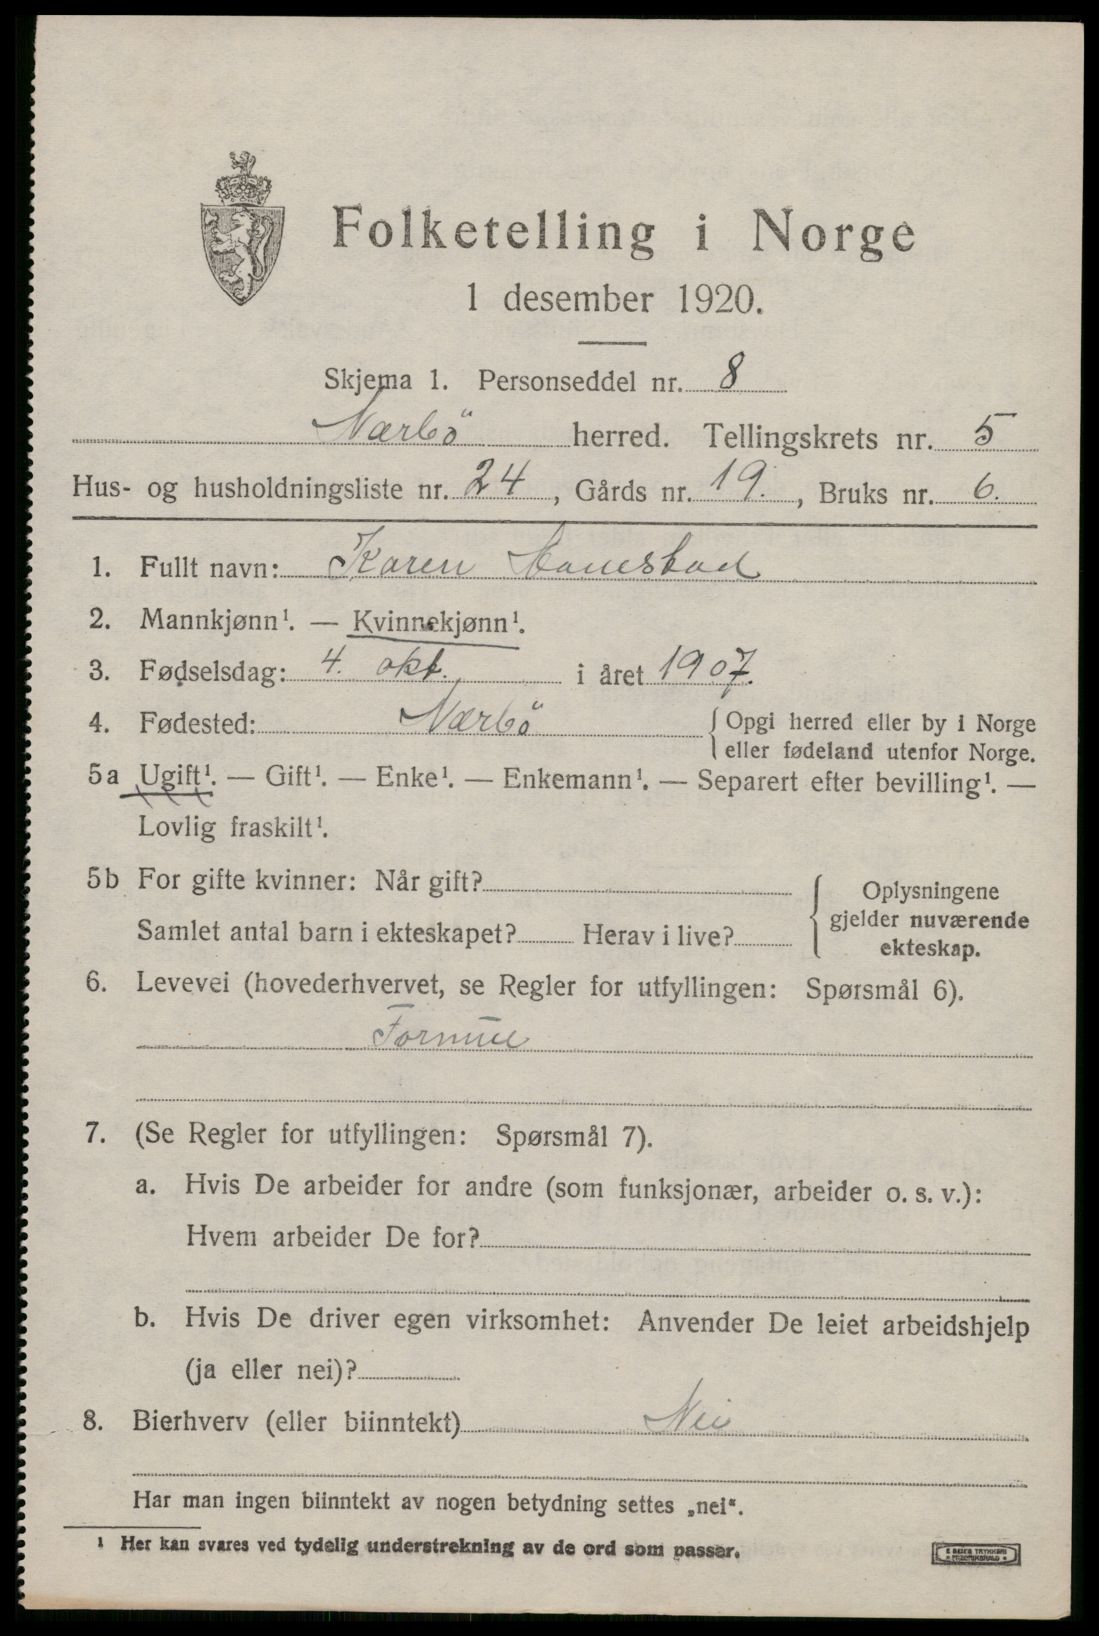 Folketelling i Norge
1 desember 1920.
Skjema 1. Personseddel nr. 8
Nærbö herred. Tellingskrets nr. 5
Hus- og husholdningsliste nr. 24, Gårds nr. 19., Bruks nr. 6.
1. Fullt navn: Karen
2. Mannkjønn¹. — Kvinnekjønn¹.
3. Fødselsdag: 4. okt. i året 1907.
4. Fødested: Nærbö {Opgi herred eller by i Norge
eller fødeland utenfor Norge.
5a Ugift¹. — Gift¹. — Enke¹. — Enkemann¹. — Separert efter bevilling¹. —
Lovlig fraskilt¹.
5b For gifte kvinner: Når gift?
Samlet antal barn i ekteskapet? Herav i live?
{ Oplysningene
gjelder nuværende
ekteskap.
6. Levevei (hovederhvervet, se Regler for utfyllingen: Spørsmål 6).
Formue
7. (Se Regler for utfyllingen: Spørsmål 7).
a. Hvis De arbeider for andre (som funksjonær, arbeider o. s. v.):
Hvem arbeider De for?
b. Hvis De driver egen virksomhet: Anvender De leiet arbeidshjelp
(ja eller nei)?
8. Bierhverv (eller biinntekt) Nei
Har man ingen biinntekt av nogen betydning settes „nei“.
¹ Her kan svares ved tydelig understrekning av de ord som passer.